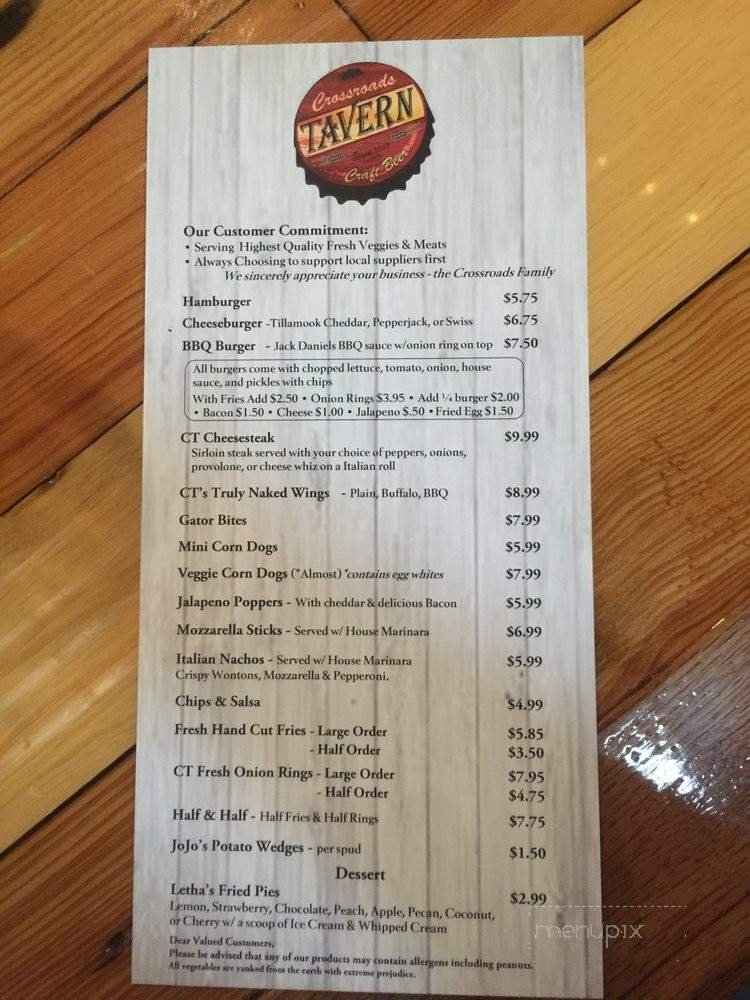 Crossroads
TAVERN
Craft Beer
Our Customer Commitment:
• Serving Highest Quality Fresh Veggies & Meats
• Always Choosing to support local suppliers first
We sincerely appreciate your business - the Crossroads Family
Hamburger $5.75
Cheeseburger -Tillamook Cheddar, Pepperjack, or Swiss $6.75
BBQ Burger - Jack Daniels BBQ sauce w/onion ring on top $7.50
All burgers come with chopped lettuce, tomato, onion, house
sauce, and pickles with chips
With Fries Add $2.50 • Onion Rings $3.95 • Add ¼ burger $2.00
• Bacon $1.50 • Cheese $1.00 • Jalapeno $.50 • Fried Egg $1.50
CT Cheesesteak $9.99
Sirloin steak served with your choice of peppers, onions,
provolone, or cheese whiz on a Italian roll
CT's Truly Naked Wings - Plain, Buffalo, BBQ $8.99
Gator Bites $7.99
Mini Corn Dogs $5.99
Veggie Corn Dogs (*Almost) *contains egg whites $7.99
Jalapeno Poppers - With cheddar & delicious Bacon $5.99
Mozzarella Sticks - Served w/ House Marinara $6.99
Italian Nachos - Served w/ House Marinara $5.99
Crispy Wontons, Mozzarella & Pepperoni.
Chips & Salsa $4.99
Fresh Hand Cut Fries - Large Order $5.85
- Half Order $3.50
CT Fresh Onion Rings - Large Order $7.95
- Half Order $4.75
Half & Half - Half Fries & Half Rings $7.75
JoJo's Potato Wedges - per spud $1.50
Dessert
Letha's Fried Pies $2.99
Lemon, Strawberry, Chocolate, Peach, Apple, Pecan, Coconut,
or Cherry w/ a scoop of Ice Cream & Whipped Cream
Dear Valued Customers,
Please be advised that any of our products may contain allergens including peanuts.
All vegetables are yanked from the earth with extreme prejudice.
menupix